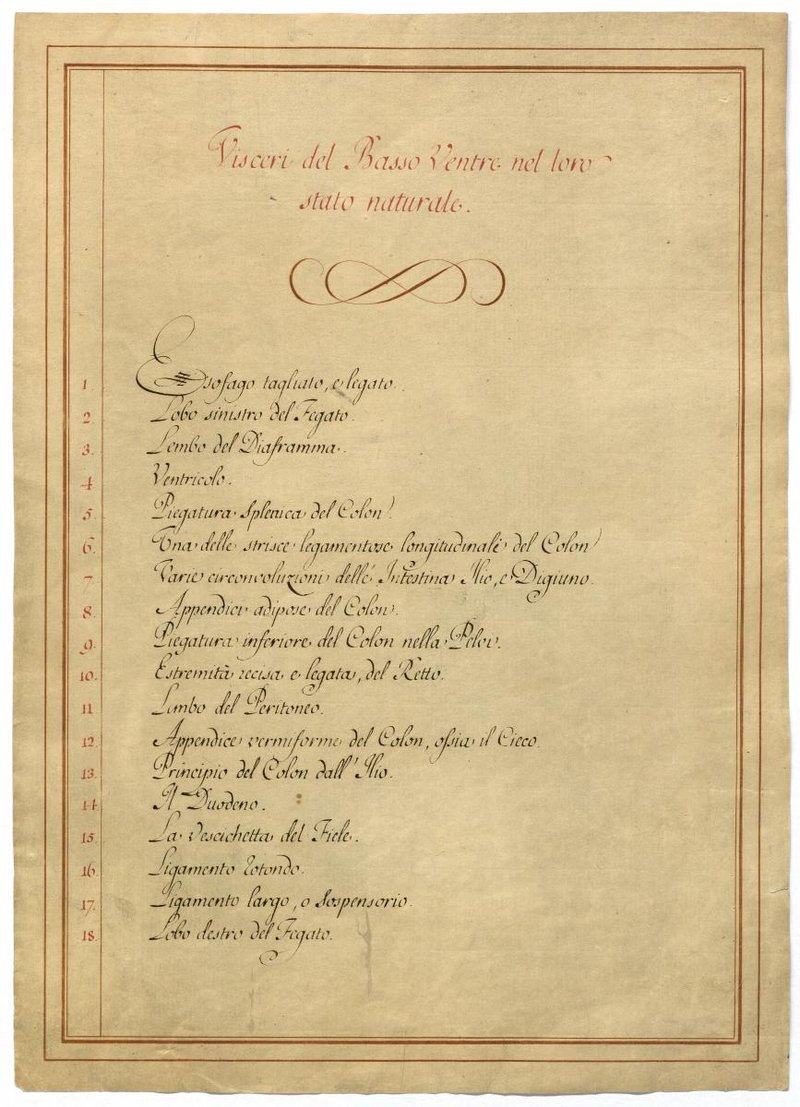 Visceri del Basso Ventre nel loro
stato naturale.
1 Esofago tagliato, e legato.
2. Lobo sinistro del Fegato.
3. Lembo del Diaframma.
4 Ventricolo.
5. Piegatura Splenica del Colon.
6. Una delle strisce legamentose longitudinale del Colon
7. Varie circonvoluzioni delle Intestina Ilio, e Digiuno.
8. Appendici adipose del Colon.
9. Piegatura inferiore del Colon nella Pelvi.
10. Estremità recisa e legata, del Retto.
11 Limbo del Peritoneo.
12. Appendice vermiforme del Colon, ossia il Cieco.
13. Principio del Colon dall' Ilio.
14. Il Duodeno.
15. La Vescichetta del Fiele.
16. Ligamento rotondo.
17. Ligamento largo, o Sospensorio.
18. Lobo destro del Fegato.